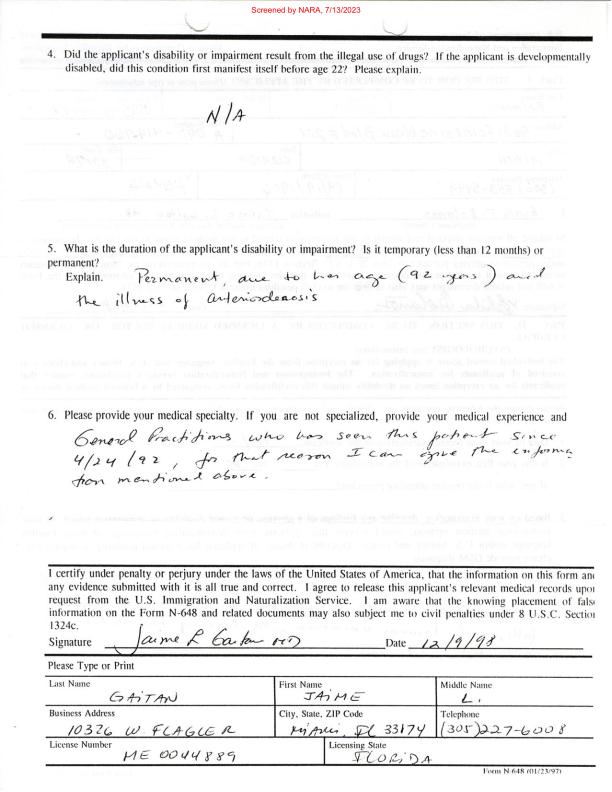 Screened by NARA, 7/13/2023
4. Did the applicant's disability or impairment result from the illegal use of drugs? If the applicant is developmentally
disabled, did this condition first manifest itself before age 22? Please explain.
N/A
5. What is the duration of the applicant's disability or impairment? Is it temporary (less than 12 months) or
permanent?
Explain. Permanent, due to her age (92 years) and
the illness of arteriosclerosis
6. Please provide your medical specialty. If you are not specialized, provide your medical experience and
General Practitions who has seen this patient since
4/24/92, for that reason I can give the informa
tion mentioned above.
I certify under penalty or perjury under the laws of the United States of America, that the information on this form and
any evidence submitted with it is all true and correct. I agree to release this applicant's relevant medical records upon
request from the U.S. Immigration and Naturalization Service. I am aware that the knowing placement of false
information on the Form N-648 and related documents may also subject me to civil penalties under 8 U.S.C. Section
1324c.
Signature Jaime L Gaitan MD Date 12/9/98
Please Type or Print
Last Name First Name Middle Name
GAITAN JAIME L.
Business Address City, State, ZIP Code Telephone
10326 W FLAGLER Miami, FL 33174 (305)227-6008
License Number Licensing State
ME 0044889 FLORIDA
Form N-648 (01/23/97)